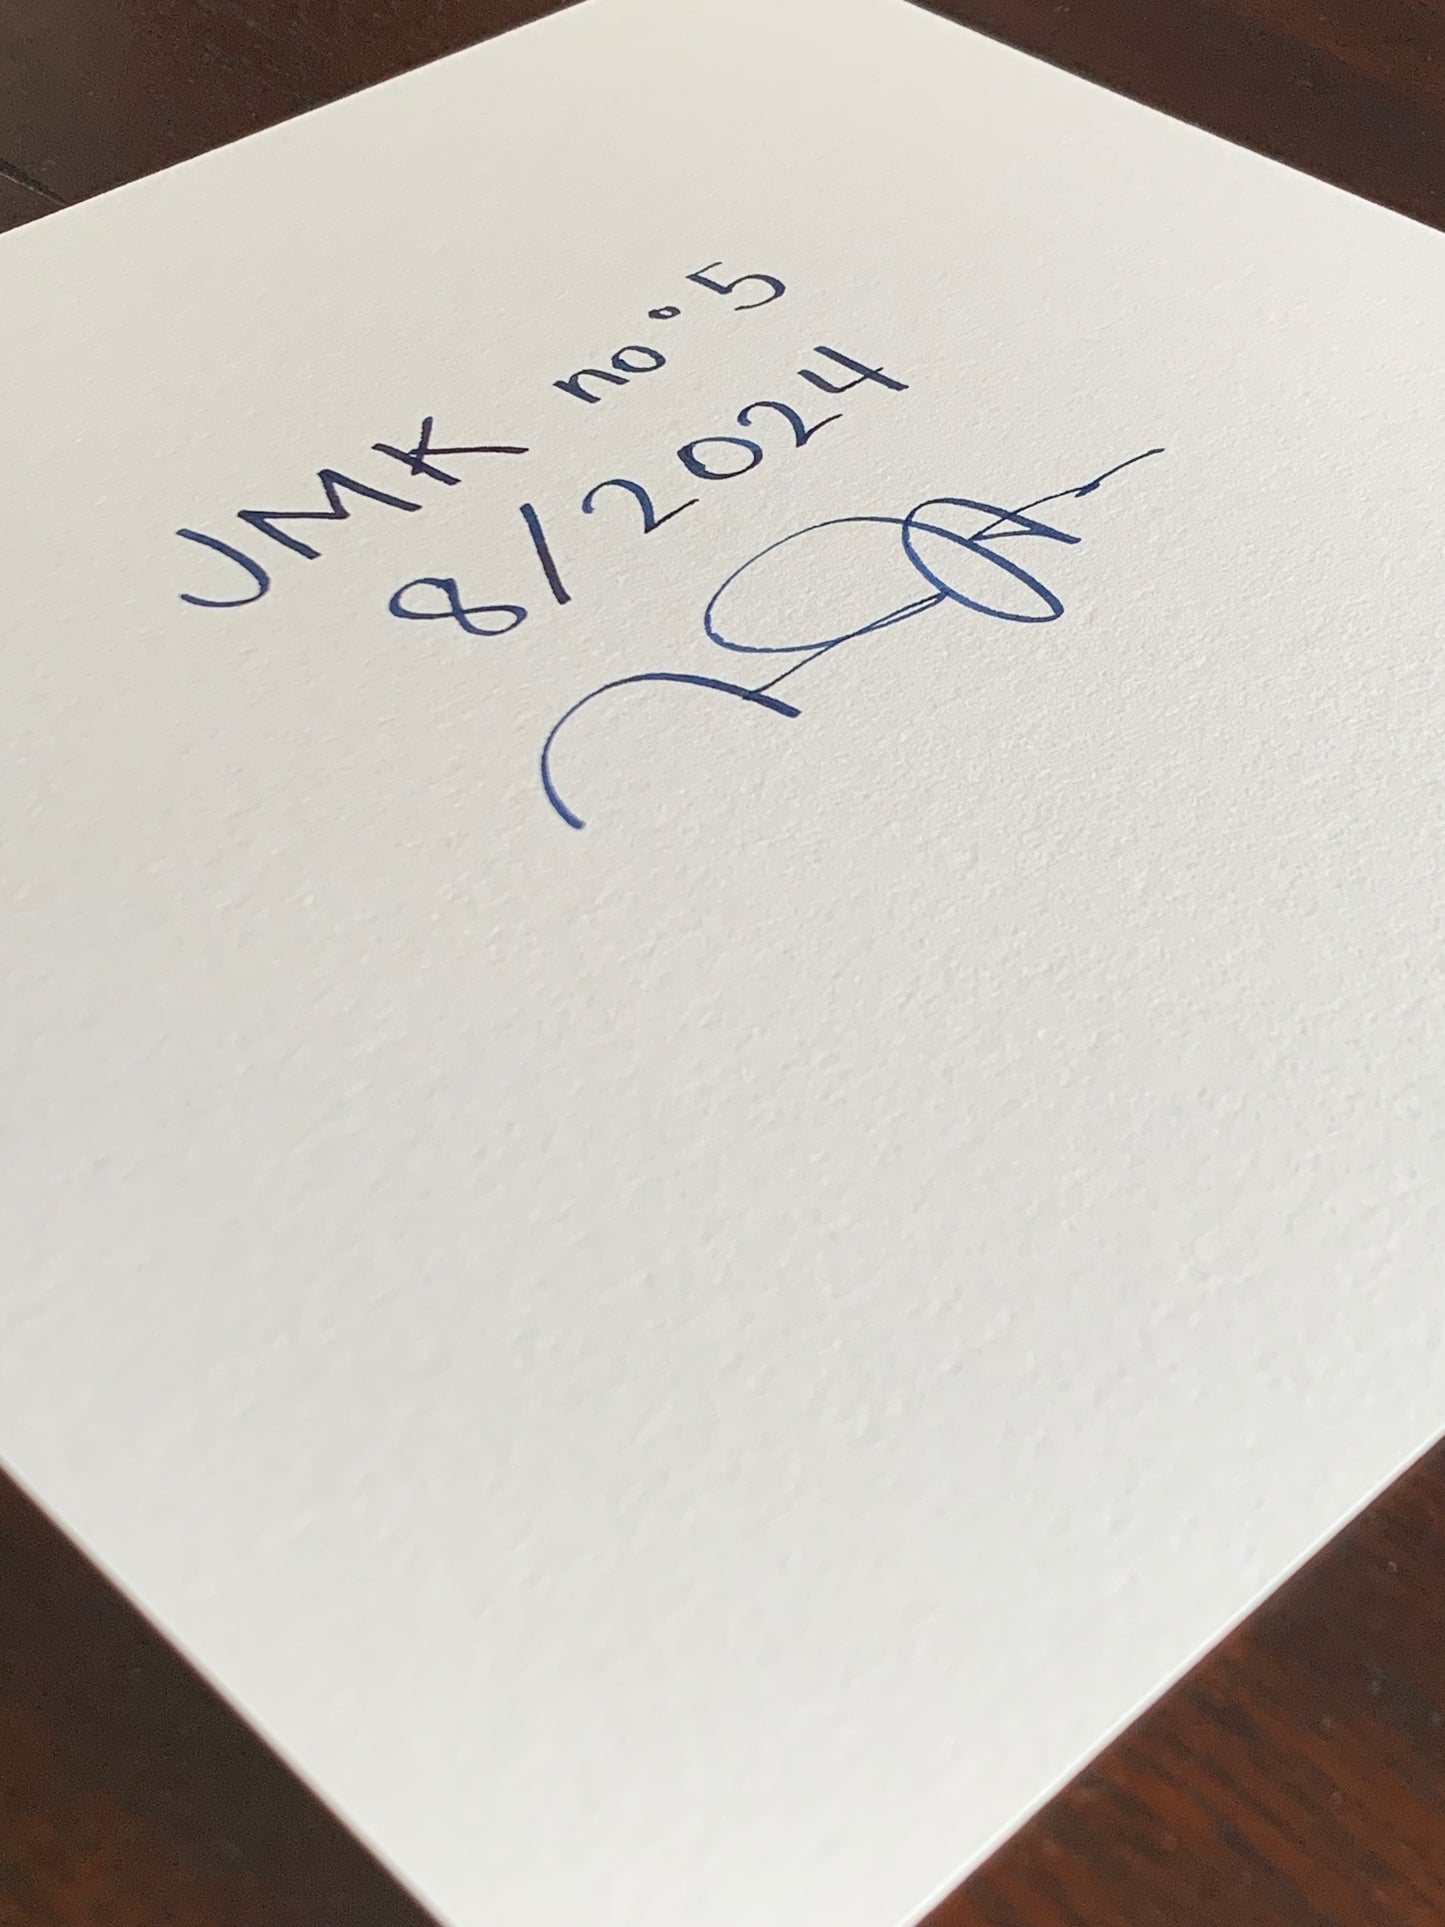 JMK no. 5
8/2024